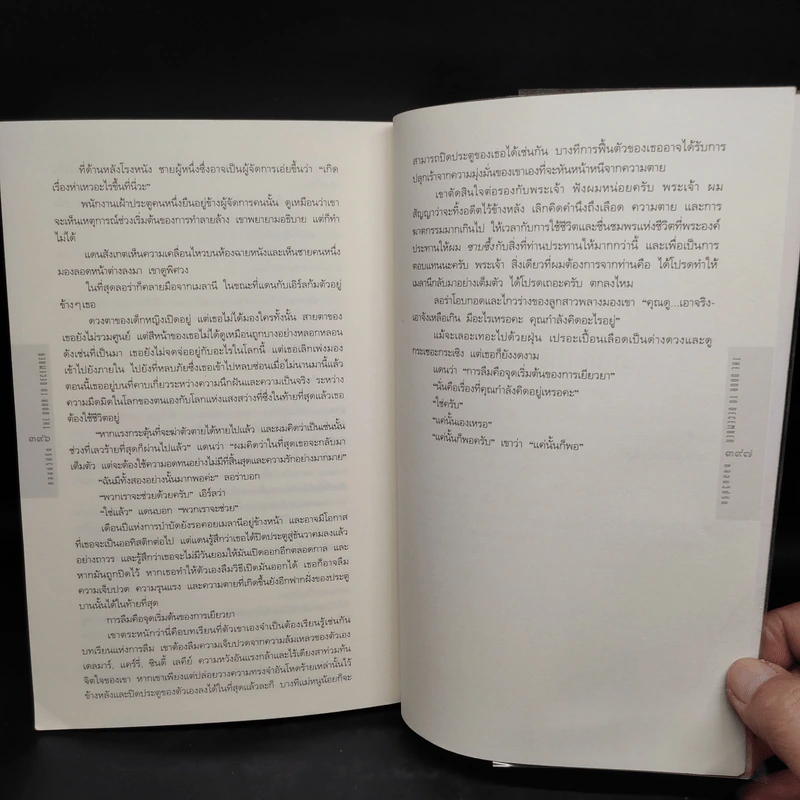 ที่ด้านหลังโรงหนัง ชายผู้หนึ่งซึ่งอาจเป็นผู้จัดการเอ่ยขึ้นว่า “เกิด
เรื่องห่าเหวอะไรขึ้นที่นี่วะ”
พนักงานเฝ้าประตูคนหนึ่งยืนอยู่ข้างผู้จัดการคนนั้น ดูเหมือนว่าเขา
จะเห็นเหตุการณ์ช่วงเริ่มต้นของการทำลายล้าง เขาพยายามอธิบาย แต่ก็ทำ
ไม่ได้
แดนสังเกตเห็นความเคลื่อนไหวบนห้องฉายหนังและเห็นชายคนหนึ่ง
มองลอดหน้าต่างลงมา เขาดูพิศวง
ในที่สุดลอร่าก็คลายมือจากเมลานี ในขณะที่แดนกับเอิร์ลก้มตัวอยู่
ข้างๆ เธอ
ดวงตาของเด็กหญิงเปิดอยู่ แต่เธอไม่ได้มองใครทั้งนั้น สายตาของ
เธอยังไม่รวมศูนย์ แต่สีหน้าของเธอไม่ได้ดูเหมือนถูกบางอย่างหลอกหลอน
ดังเช่นที่เป็นมา เธอยังไม่จดจ่ออยู่กับอะไรในโลกนี้ แต่เธอเลิกเพ่งมอง
เข้าไปยังภายใน ไปยังที่หลบภัยซึ่งเธอเข้าไปหลบซ่อนเมื่อไม่นานมานี้แล้ว
ตอนนี้เธออยู่บนที่คาบเกี่ยวระหว่างความนึกฝันและความเป็นจริง ระหว่าง
ความมืดมิดในโลกของตนเองกับโลกแห่งแสงสว่างที่ซึ่งในท้ายที่สุดแล้วเธอ
ต้องใช้ชีวิตอยู่
“หากแรงกระตุ้นที่จะฆ่าตัวตายได้หายไปแล้ว และผมคิดว่าเป็นเช่นนั้น
ช่วงที่เลวร้ายที่สุดก็ผ่านไปแล้ว” แดนว่า “ผมคิดว่าในที่สุดเธอจะกลับมา
เต็มตัว แต่จะต้องใช้ความอดทนอย่างไม่มีที่สิ้นสุดและความรักอย่างมากมาย”
“ฉันมีทั้งสองอย่างนั้นมากพอค่ะ” ลอร่าบอก
“พวกเราจะช่วยด้วยครับ” เอิร์ลว่า
“ใช่แล้ว” แดนบอก “พวกเราจะช่วย”
เดือนปีแห่งการบำบัดยังรอคอยเมลานีอยู่ข้างหน้า และอาจมีโอกาส
ที่เธอจะเป็นออทิสติกต่อไป แต่แดนรู้สึกว่าเธอได้ปิดประตูสู่ธันวาคมลงแล้ว
อย่างถาวร และรู้สึกว่าเธอจะไม่มีวันยอมให้มันเปิดออกอีกตลอดกาล และ
หากมันถูกปิดไว้ หากเธอทำให้ตัวเองลืมวิธีเปิดมันออกได้ เธอก็อาจลืม
ความเจ็บปวด ความรุนแรง และความตายที่เกิดขึ้นยังอีกฟากฝั่งของประตู
บานนั้นได้ในท้ายที่สุด
การลืมคือจุดเริ่มต้นของการเยียวยา
เขาตระหนักว่านี่คือบทเรียนที่ตัวเขาเองจำเป็นต้องเรียนรู้เช่นกัน
บทเรียนแห่งการลืม เขาต้องลืมความเจ็บปวดจากความล้มเหลวของตัวเอง
เดลมาร์, แคร์รี่, ซินดี้ เลคีย์ ความหวังอันแรงกล้าและไร้เดียงสาท่วมท้น
จิตใจของเขา หากเขาเพียงแต่ปล่อยวางความทรงจำอันโหดร้ายเหล่านั้นไว้
ข้างหลังและปิดประตูของตัวเองลงได้ในที่สุดแล้วละก็ บางทีแม่หนูน้อยก็จะ
THE DOOR TO DECEMBER
๓๙๖
สามารถปิดประตูของเธอได้เช่นกัน บางทีการฟื้นตัวของเธออาจได้รับการ
ปลุกเร้าจากความมุ่งมั่นของเขาเองที่จะหันหน้าหนีจากความตาย
เขาตัดสินใจต่อรองกับพระเจ้า ฟังผมหน่อยครับ พระเจ้า ผม
สัญญาว่าจะทิ้งอดีตไว้ข้างหลัง เลิกคิดคำนึงถึงเลือด ความตาย และการ
ฆาตกรรมมากเกินไป ให้เวลากับการใช้ชีวิตและชื่นชมพรแห่งชีวิตที่พระองค์
ประทานให้ผม ซาบซึ้งกับสิ่งที่ท่านประทานให้มากกว่านี้ และเพื่อเป็นการ
ตอบแทนนะครับ พระเจ้า สิ่งเดียวที่ผมต้องการจากท่านคือ ได้โปรดทำให้
เมลานีกลับมาอย่างเต็มตัว ได้โปรดเถอะครับ ตกลงไหม
ลอร่าโอบกอดและไกวร่างของลูกสาวพลางมองเขา “คุณดู...เอาจริง-
เอาจังเหลือเกิน มีอะไรเหรอคะ คุณกำลังคิดอะไรอยู่”
แม้จะเลอะเทอะไปด้วยฝุ่น เปรอะเปื้อนเลือดเป็นด่างดวงและดู
กระเซอะกระเซิง แต่เธอก็ยังงดงาม
แดนว่า “การลืมคือจุดเริ่มต้นของการเยียวยา”
“นั่นคือเรื่องที่คุณกำลังคิดอยู่เหรอคะ”
“ใช่ครับ”
“แค่นั้นเองเหรอ”
“แค่นั้นก็พอครับ” เขาว่า “แค่นั้นก็พอ”
THE DOOR TO DECEMBER
๓๙๗